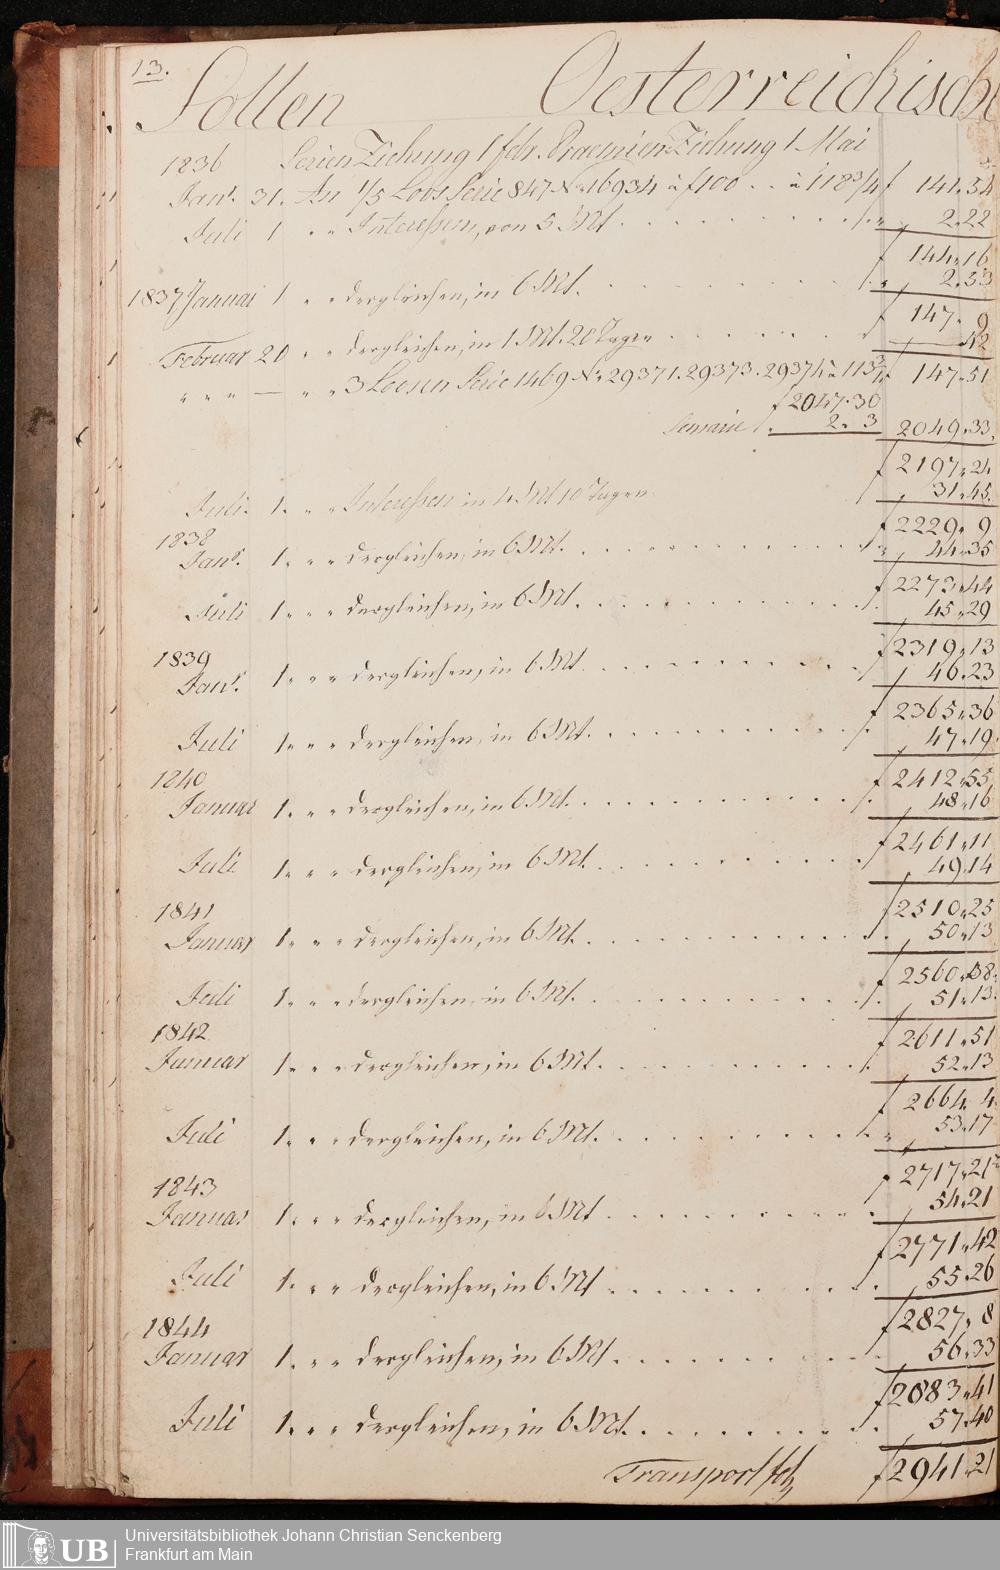 13.
Sollen Oesterreichische
1836 Serien Ziehung 1 febr. Praemien Ziehung 1 Mai
Janr. 31. An 1/5 Loos Serie 847 No 16934 à f 100 . . à 118 3/4 f 141.54
Juli 1 " " Interessen, von 5 Mt . . . 2.22
f 144.16
1837 Januar 1 " " dergleichen, in 6 Mt. . . . 2.53
f 147. 9
Februar 20 " " dergleichen, in 1 Mt. 20 Tagen . . . 42
f 147.51
" " " — " " 3 Loosen Serie 1469 No 29371. 29373. 29374 à 113 3/4
f 2047.30
Senserie 2. 3 2049.33.
f 2197.24
Juli 1. " " Interessen in 4 Mt 10 Tagen 31.45.
f 2229. 9
1838
Janr. 1. " " dergleichen, in 6 Mt. . . . 44.35
f 2273.44
Juli 1. " " dergleichen, in 6 Mt. . . . 45.29
f 2319.13
1839
Janr. 1. " " dergleichen, in 6 Mt . . . 46.23
f 2365.36
Juli 1. " " dergleichen, in 6 Mt. . . . 47.19.
f 2412.55
1840
Januar 1. " " dergleichen, in 6 Mt. . . . 48.16
f 2461.11
Juli 1. " " dergleichen, in 6 Mt. . . . 49.14
f 2510.25
1841
Januar 1. " " dergleichen, in 6 Mt. . . . 50.13
f 2560.38.
Juli 1. " " dergleichen, in 6 Mt. . . . 51.13.
f 2611.51
1842
Januar 1. " " dergleichen, in 6 Mt. . . . 52.13
f 2664. 4.
Juli 1. " " dergleichen, in 6 Mt. . . . 53.17
f 2717.21
1843
Januar 1. " " dergleichen, in 6 Mt . . . 54.21
f 2771.42
Juli 1. " " dergleichen, in 6 Mt . . . 55.26
f 2827. 8
1844
Januar 1. " " dergleichen, in 6 Mt. . . . 56.33
f 2883.41
Juli 1. " " dergleichen, in 6 Mt. . . . 57.40
Transport f 2941.21
UB
Universitätsbibliothek Johann Christian Senckenberg
Frankfurt am Main